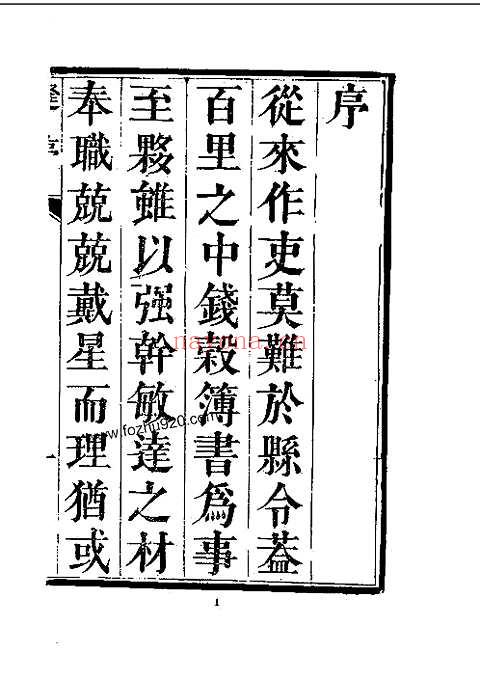 序
從來作吏莫難於縣令葢
百里之中錢榖簿書為事
至夥雖以强幹敏達之材
奉職兢兢戴星而理猶或
一
1
www.fozhu920.com